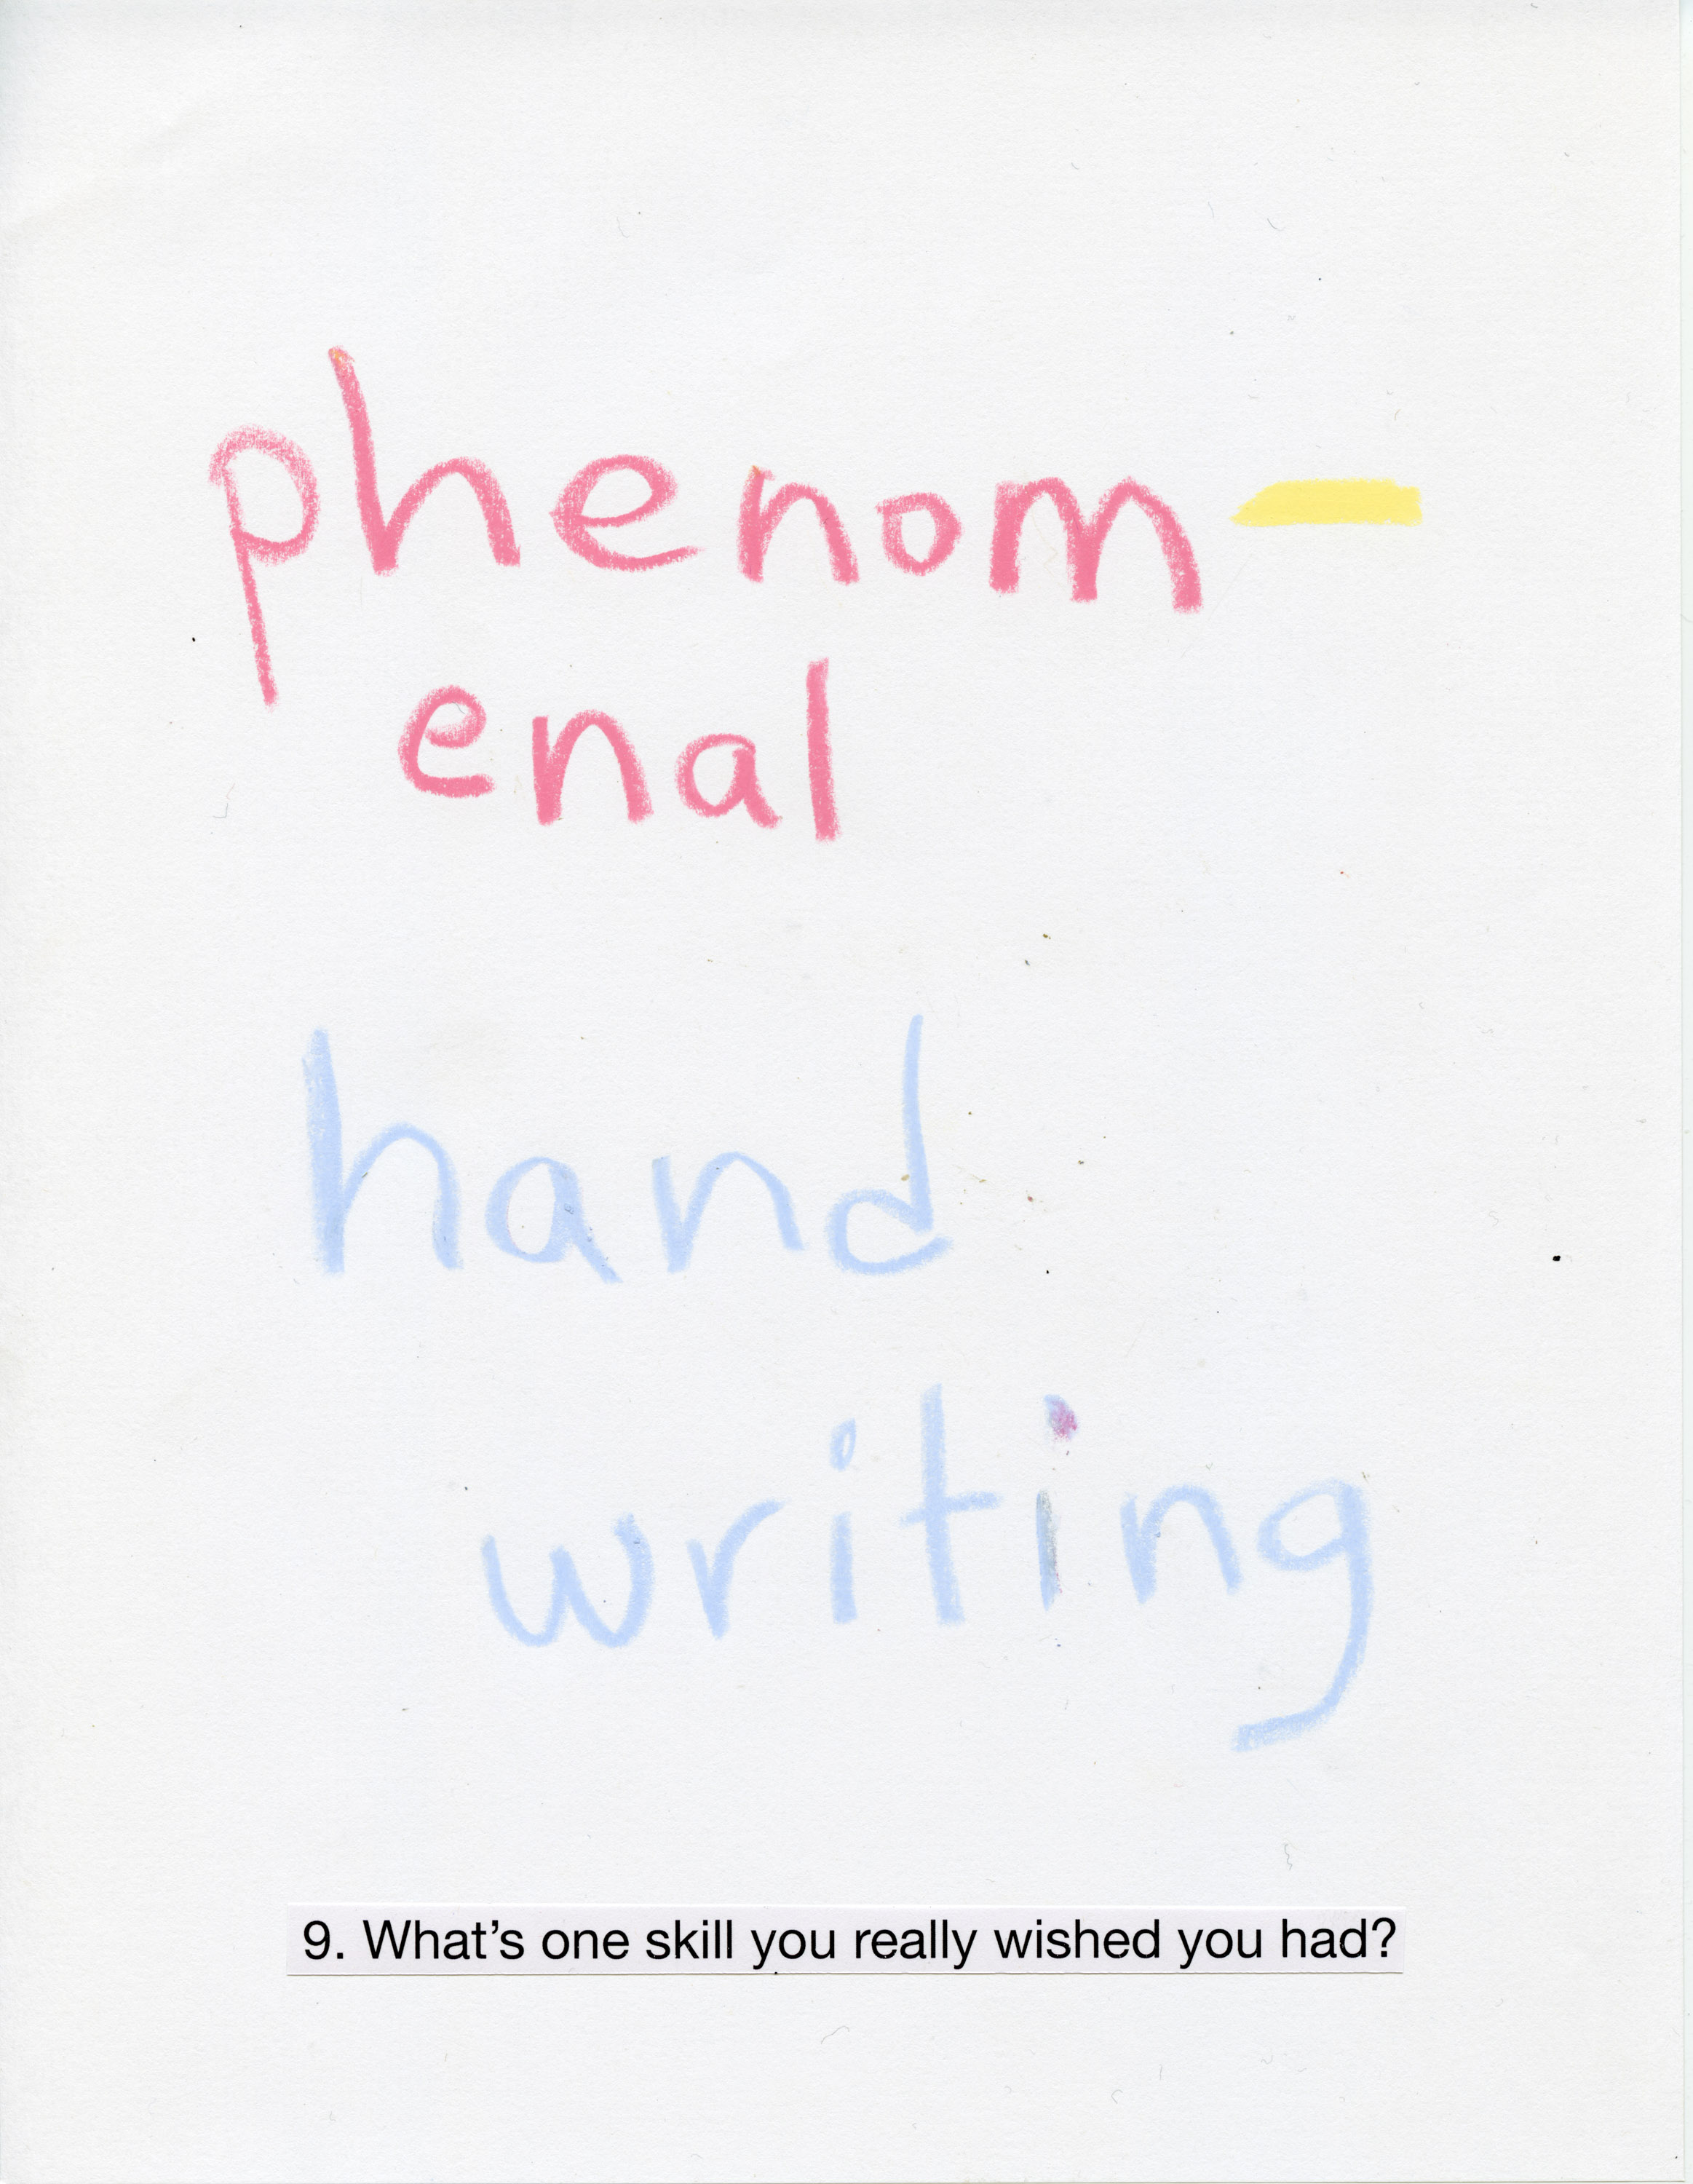 phenom-
enal
hand
writing
9. What’s one skill you really wished you had?